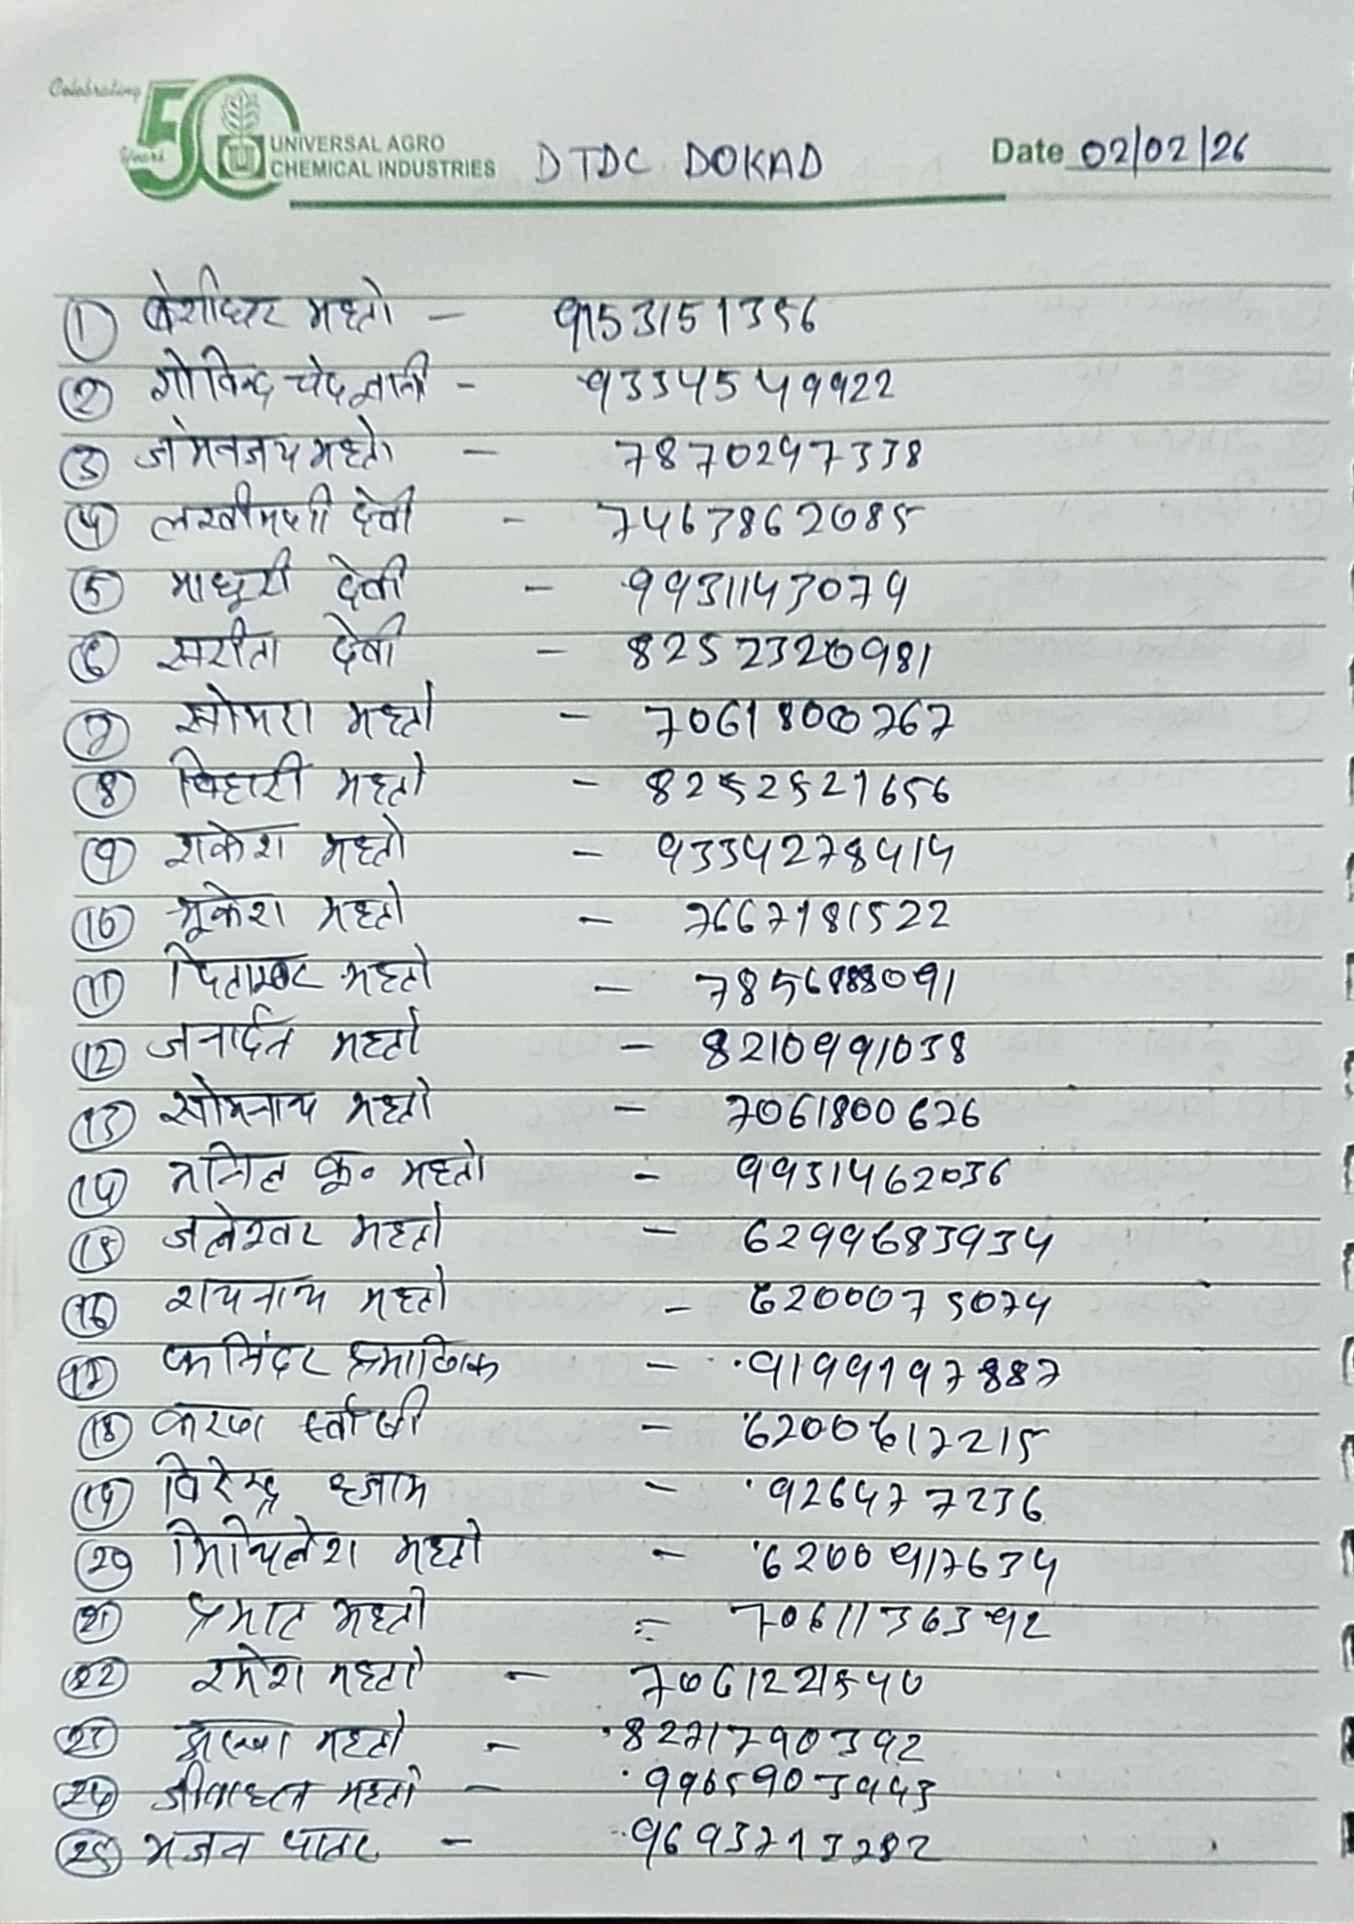 Celebrating
50 Years
UNIVERSAL AGRO
CHEMICAL INDUSTRIES
DTDC DOKAD
Date 02/02/26
① बंशीधर महतो - 9153151356
② गोविन्द चंद - 9334549922
③ जंमनजय महतो - 7870247338
④ लखीमणी देवी - 7463862085
⑤ माधूरी देवी - 9931143079
⑥ सरीता देवी - 8252320981
⑦ सोमरा महतो - 7061800767
⑧ बिहारी महतो - 8252521656
⑨ राकेश महतो - 9334278414
⑩ मूकेश महतो - 7667181522
⑪ पिताम्बर महतो - 7856888091
⑫ जनार्दन महतो - 8210991038
⑬ सोमनाथ महतो - 7061800626
⑭ कू० महतो - 9931462036
⑮ जलेश्वर महतो - 6299683934
⑯ रायनाथ महतो - 6200075074
⑰ प्रमाणिक - 9199197887
⑱ करण - 6200617215
⑲ विरेन्द्र हजाम - 926477236
⑳ मिथिलेश महतो - 6200917634
㉑ प्रभात महतो = 7061136392
㉒ रमेश महतो - 7061221540
㉓ महतो - 8271790392
㉔ महतो - 9965903943
㉕ भजन पातर - 9693713282